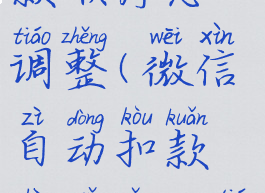 tiáo zhěng wēi xìn
调整(微信
zì dòng kòu kuǎn
自动扣款